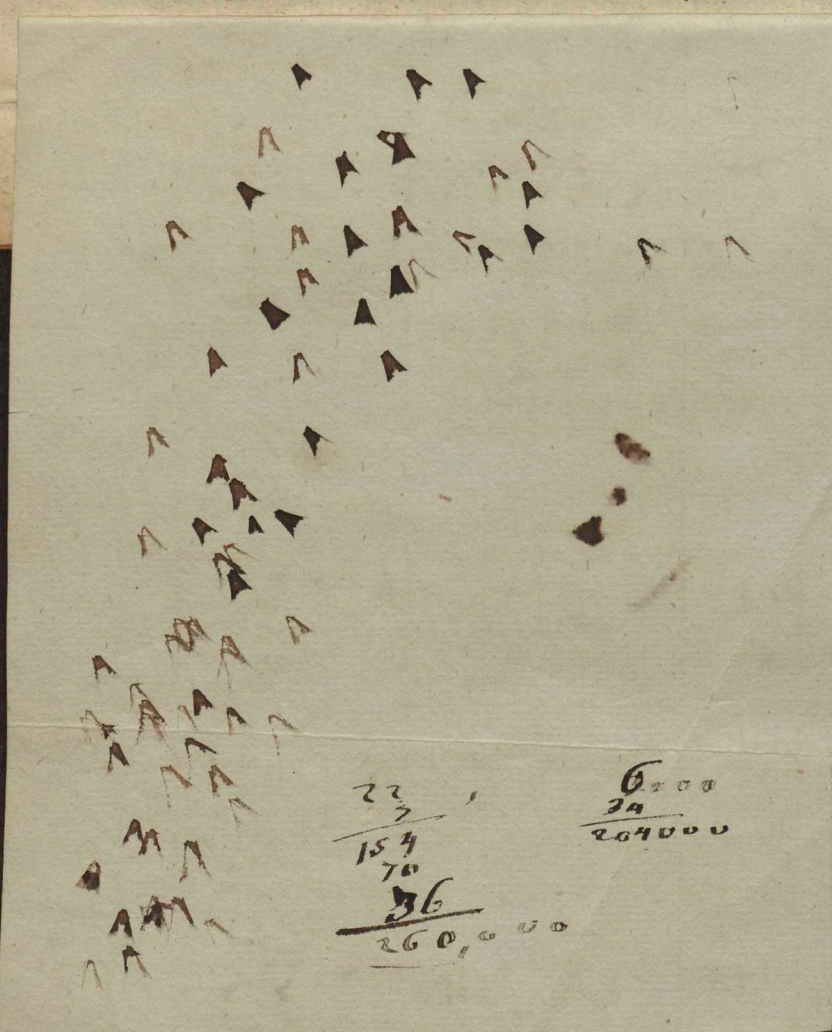 22
7
154
70
36
260,000
6000
34
204000